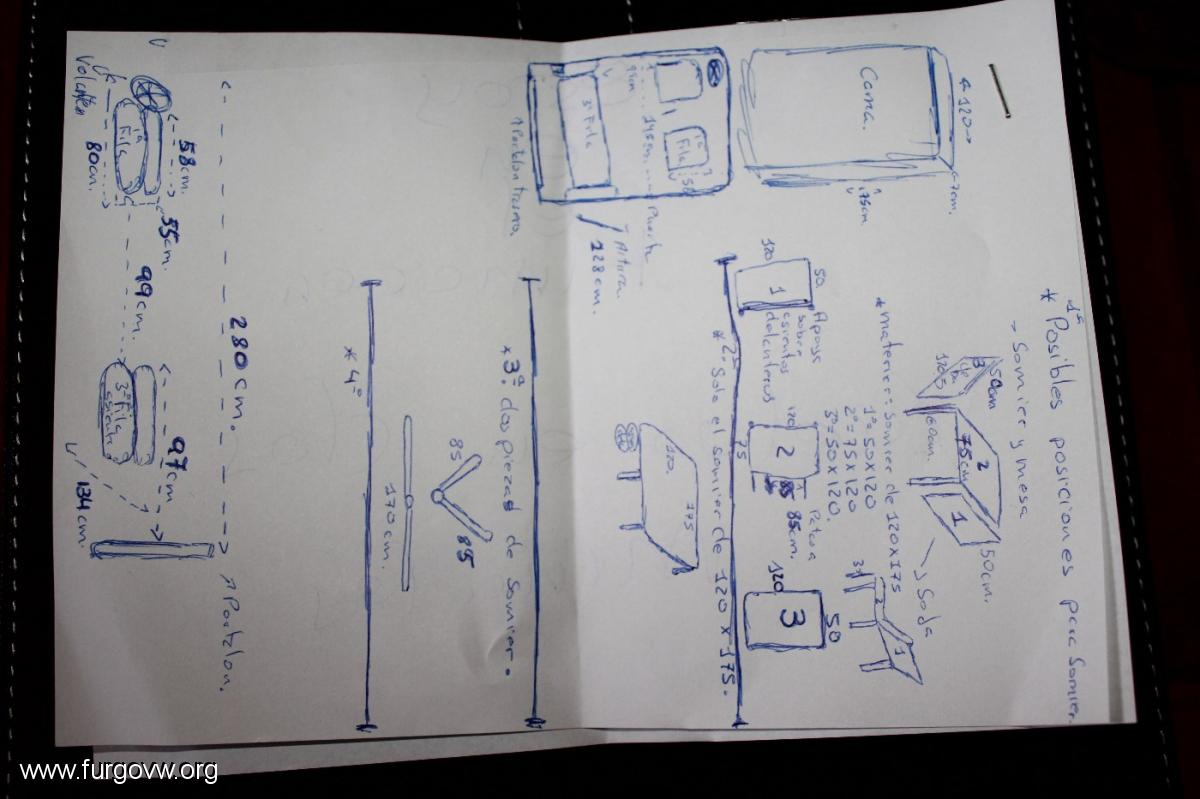 1ª
* Posibles posiciones para somier.
→ Somier y mesa
50cm
3
120
60cm.
2
75cm
1
50cm.
→ Soda
3
2
1
* material: Somier de 120x175
1º = 50x120
2º = 75x120
3º = 50x120.
← 120 →
Cama.
7cm.
175cm.
50.
120
1
Apoya
sobre
asientos
delanteros
120
2
75
1 Patura
85cm.
120
3
50
* 2º Solo el somier de 120 x 175.
120.
175
1ª
Fila
99cm
145cm.
Puerta
3ª Fila
↑ Portalon trasero.
Altura.
228cm.
* 3ª. dos piezas de somier.
85
85
170 cm.
* 4º
280cm.
Portalon.
Volante
1ª
Fila
58cm.
80cm.
55cm.
99cm.
3ª Fila
asiento
97cm
134cm.
www.furgovw.org